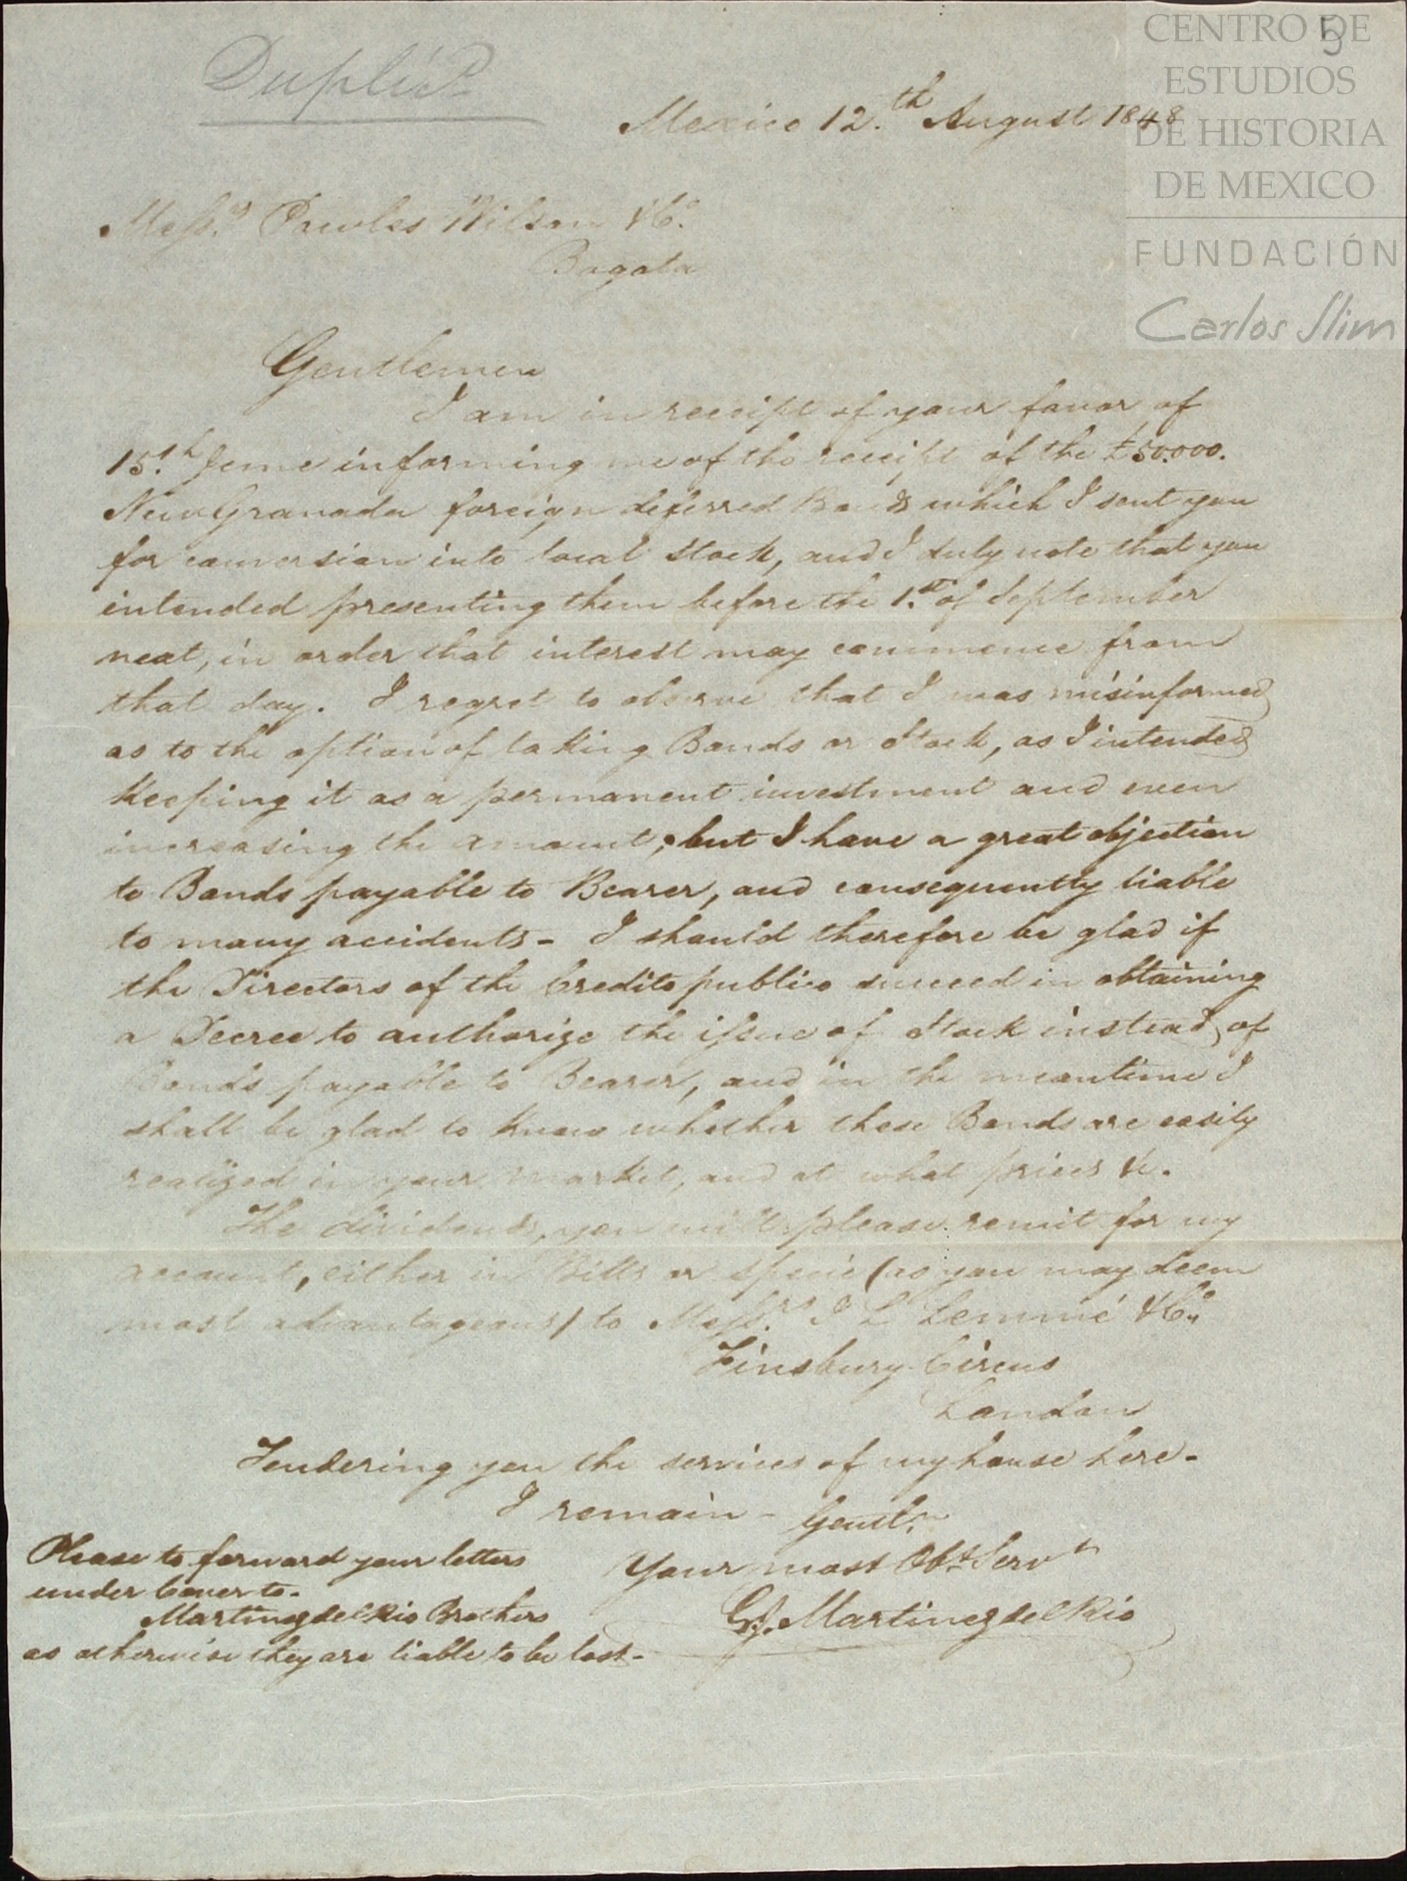 5
CENTRO DE
ESTUDIOS
DE HISTORIA
DE MEXICO
FUNDACIÓN
Carlos Slim
Duplicº
Mexico 12.th August 1848
Messrs Powles Wilson & Co.
Bogota
Gentlemen
I am in receipt of your favor of
15.th June informing me of the receipt of the £50.000.
New Granada foreign deferred Bonds which I sent you
for conversion into local Stock, and I duly note that you
intended presenting them before the 1.st of September
next, in order that interest may commence from
that day. I regret to observe that I was misinformed
as to the option of taking Bonds or Stock, as I intended
keeping it as a permanent investment and even
increasing the amount; but I have a great objection
to Bonds payable to Bearer, and consequently liable
to many accidents - I should therefore be glad if
the Directors of the Credito publico succeed in obtaining
a Decree to authorize the issue of Stock instead of
Bonds payable to Bearer, and in the meantime I
shall be glad to know whether these Bonds are easily
realized in your market, and at what prices &c.
The dividends, you will please remit for my
account, either in Bills or specie (as you may deem
most advantageous) to Messrs. I L Lemmé & Co.
Finsbury Circus
London
Tendering you the services of my house here -
I remain - Gentn
Your most Obt Servt
G. J. Martinez del Rio
Please to forward your letters
under Cover to -
Martinez del Rio Brothers
as otherwise they are liable to be lost -